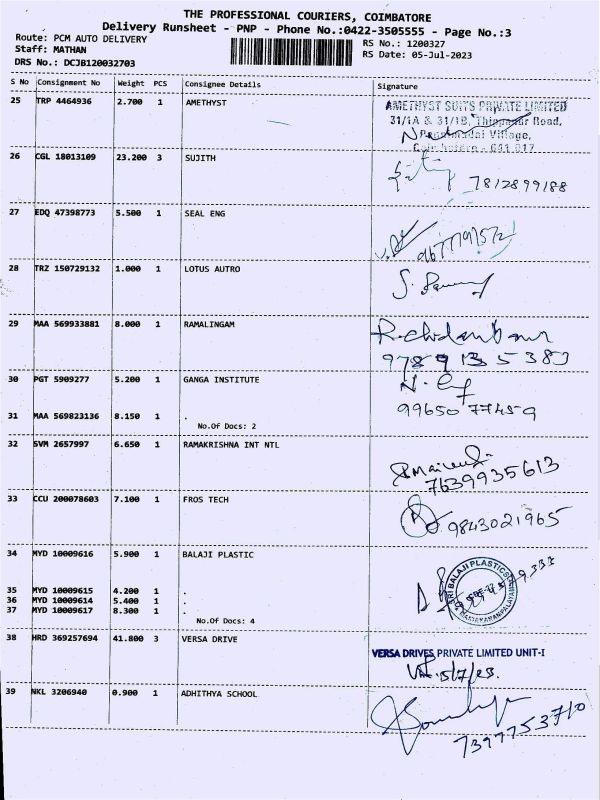 THE PROFESSIONAL COURIERS, COIMBATORE
Delivery Runsheet - PNP - Phone No.:0422-3505555 - Page No.:3
Route: PCM AUTO DELIVERY
Staff: MATHAN
DRS No.: DCJB120032703
RS No.: 1200327
RS Date: 05-Jul-2023
S No Consignment No Weight PCS Consignee Details Signature
25 TRP 4464936 2.700 1 AMETHYST
AMETHYST SUITS PRIVATE LIMITED
31/1A & 31/1B, Thippanur Road,
Village,
Coimbatore - 641 017
26 CGL 18013109 23.200 3 SUJITH
7812899188
27 EDQ 47398773 5.500 1 SEAL ENG
28 TRZ 150729132 1.000 1 LOTUS AUTRO
29 MAA 569933881 8.000 1 RAMALINGAM
9789135383
30 PGT 5909277 5.200 1 GANGA INSTITUTE
99650 77459
31 MAA 569823136 8.150 1 .
No.Of Docs: 2
32 SVM 2657997 6.650 1 RAMAKRISHNA INT NTL
7639935613
33 CCU 200078603 7.100 1 FROS TECH
9843021965
34 MYD 10009616 5.900 1 BALAJI PLASTIC
SRI BALAJI PLASTICS
35 MYD 10009615 4.200 1 .
36 MYD 10009614 5.400 1 .
37 MYD 10009617 8.300 1 .
No.Of Docs: 4
38 HRD 369257694 41.800 3 VERSA DRIVE
VERSA DRIVES PRIVATE LIMITED UNIT-I
5/7/23.
39 NKL 3206940 0.900 1 ADHITHYA SCHOOL
7397753710